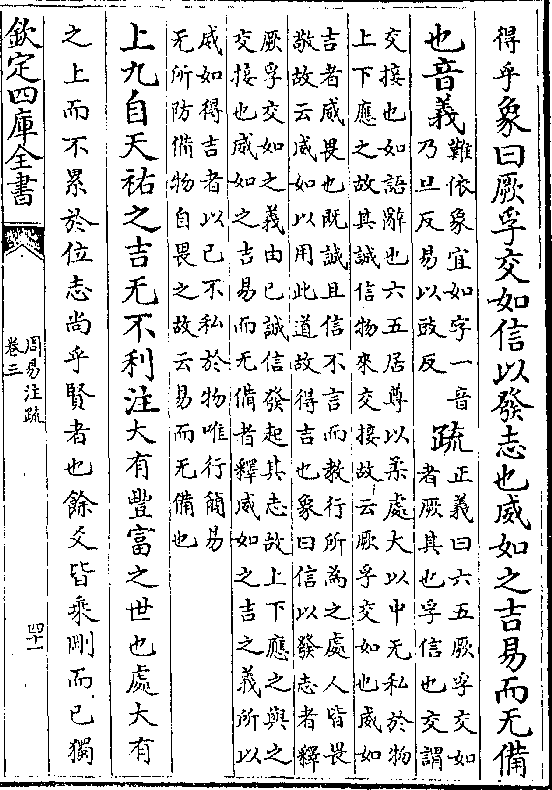 得乎象曰厥孚交如信以發志也威如之吉易而无備
也音義難依象宜如字一音
乃旦反易以豉反疏正義曰六五厥孚交如
者厥其也孚信也交謂
交接也如語辭也六五居尊以柔處大以中无私於物
上下應之故其誠信物來交接故云厥孚交如也威如
吉者威畏也既誠且信不言而教行所為之處人皆畏
敬故云威如以用此道故得吉也象曰信以發志者釋
厥孚交如之義由已誠信發起其志故上下應之與之
交接也威如之吉易而无備者釋威如之吉之義所以
威如得吉者以已不私於物唯行簡易
无所防備物自畏之故云易而无備也
上九自天祐之吉无不利注大有豐富之世也處大有
之上而不累於位志尚乎賢者也餘爻皆乘剛而已獨
欽定四庫全書
周易注疏
卷三
四十一